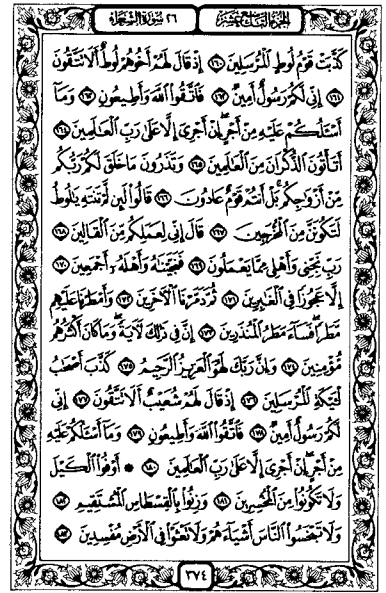 الجزء التاسع عشر ٢٦ سورة الشعراء
كَذَّبَتْ قَوْمُ لُوطٍ الْمُرْسَلِينَ ١٦٠ إِذْ قَالَ لَهُمْ أَخُوهُمْ لُوطٌ أَلَا تَتَّقُونَ
١٦١ إِنِّي لَكُمْ رَسُولٌ أَمِينٌ ١٦٢ فَاتَّقُوا اللَّهَ وَأَطِيعُونِ ١٦٣ وَمَا
أَسْـَٔلُكُمْ عَلَيْهِ مِنْ أَجْرٍ إِنْ أَجْرِيَ إِلَّا عَلَىٰ رَبِّ الْعَالَمِينَ ١٦٤
أَتَأْتُونَ الذُّكْرَانَ مِنَ الْعَالَمِينَ ١٦٥ وَتَذَرُونَ مَا خَلَقَ لَكُمْ رَبُّكُم
مِّنْ أَزْوَاجِكُم بَلْ أَنتُمْ قَوْمٌ عَادُونَ ١٦٦ قَالُوا لَئِن لَّمْ تَنتَهِ يَٰلُوطُ
لَتَكُونَنَّ مِنَ الْمُخْرَجِينَ ١٦٧ قَالَ إِنِّي لِعَمَلِكُم مِّنَ الْقَالِينَ ١٦٨
رَبِّ نَجِّنِي وَأَهْلِي مِمَّا يَعْمَلُونَ ١٦٩ فَنَجَّيْنَٰهُ وَأَهْلَهُۥ أَجْمَعِينَ ١٧٠
إِلَّا عَجُوزًا فِي الْغَٰبِرِينَ ١٧١ ثُمَّ دَمَّرْنَا الْآخَرِينَ ١٧٢ وَأَمْطَرْنَا عَلَيْهِم
مَّطَرًا فَسَاءَ مَطَرُ الْمُنذَرِينَ ١٧٣ إِنَّ فِي ذَٰلِكَ لَآيَةً وَمَا كَانَ أَكْثَرُهُم
مُّؤْمِنِينَ ١٧٤ وَإِنَّ رَبَّكَ لَهُوَ الْعَزِيزُ الرَّحِيمُ ١٧٥ كَذَّبَ أَصْحَٰبُ
لْـَٔيْكَةِ الْمُرْسَلِينَ ١٧٦ إِذْ قَالَ لَهُمْ شُعَيْبٌ أَلَا تَتَّقُونَ ١٧٧ إِنِّي
لَكُمْ رَسُولٌ أَمِينٌ ١٧٨ فَاتَّقُوا اللَّهَ وَأَطِيعُونِ ١٧٩ وَمَا أَسْـَٔلُكُمْ عَلَيْهِ
مِنْ أَجْرٍ إِنْ أَجْرِيَ إِلَّا عَلَىٰ رَبِّ الْعَالَمِينَ ١٨٠ ۞ أَوْفُوا الْكَيْلَ
وَلَا تَكُونُوا مِنَ الْمُخْسِرِينَ ١٨١ وَزِنُوا بِالْقِسْطَاسِ الْمُسْتَقِيمِ ١٨٢
وَلَا تَبْخَسُوا النَّاسَ أَشْيَاءَهُمْ وَلَا تَعْثَوْا فِي الْأَرْضِ مُفْسِدِينَ ١٨٣
٣٧٤